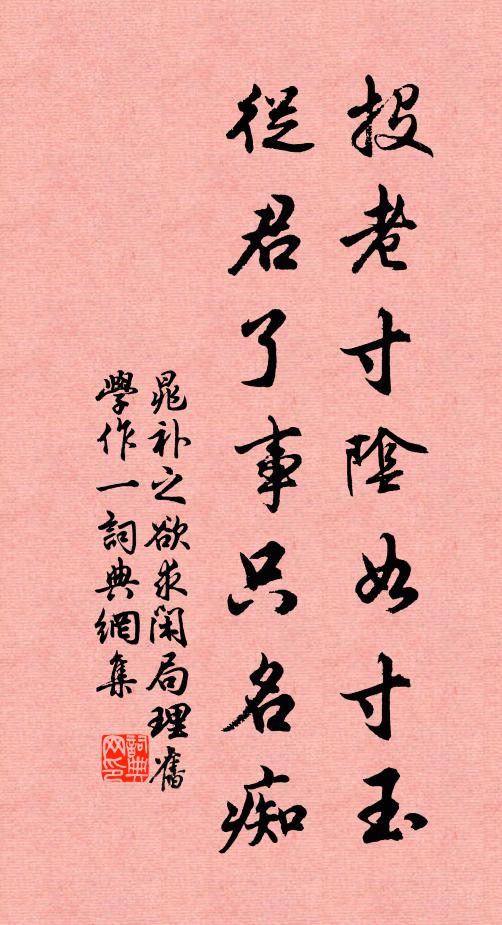 投老寸陰如寸玉
從君了事只名痴
晁补之欲求閑局理舊
學作一詞典網集
詞典
网印